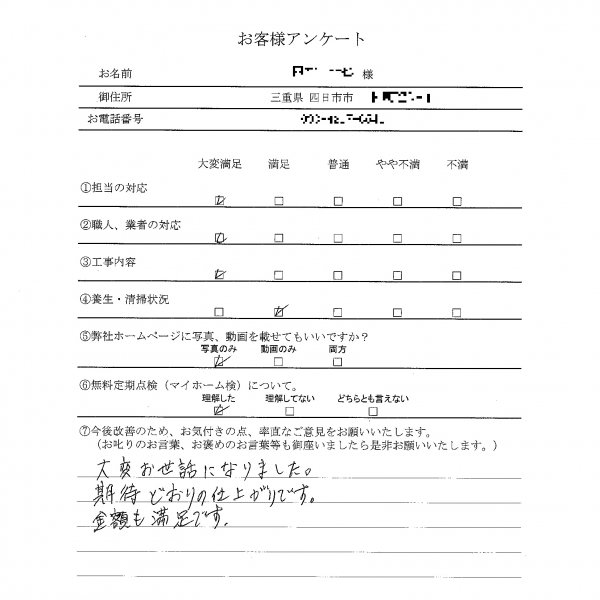 お客様アンケート
お名前 様
御住所 三重県 四日市市
お電話番号
大変満足 満足 普通 やや不満 不満
①担当の対応 ☑ □ □ □ □
②職人、業者の対応 ☑ □ □ □ □
③工事内容 ☑ □ □ □ □
④養生・清掃状況 □ ☑ □ □ □
⑤弊社ホームページに写真、動画を載せてもいいですか？
写真のみ 動画のみ 両方
☑ □ □
⑥無料定期点検（マイホーム検）について。
理解した 理解してない どちらとも言えない
☑ □ □
⑦今後改善のため、お気付きの点、率直なご意見をお願いいたします。
（お叱りのお言葉、お褒めのお言葉等も御座いましたら是非お願いいたします。）
大変お世話になりました。
期待どおりの仕上がりです。
金額も満足です。